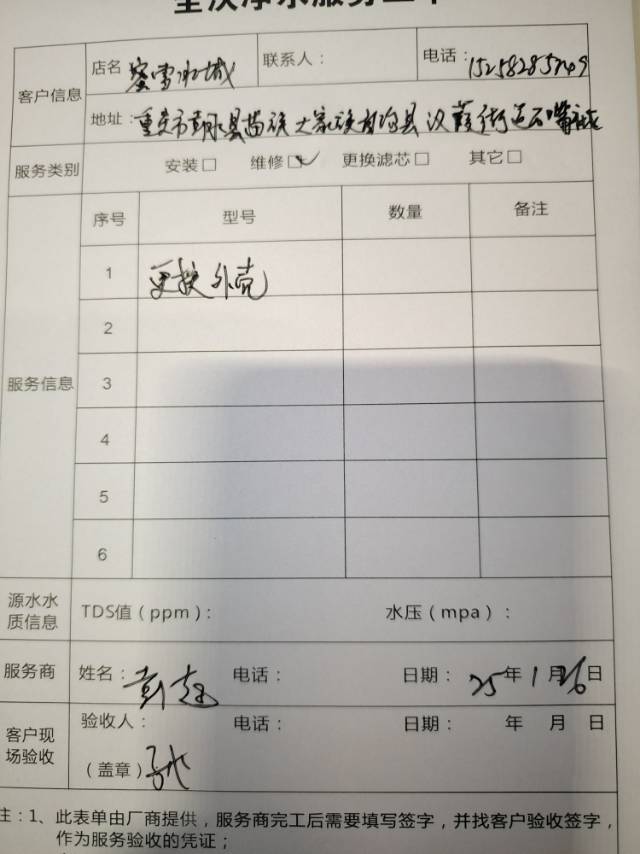 净水服务
客户信息 店名 蜜雪冰城 联系人： 电话：
地址： 重庆市彭水县苗族土家族自治县汉葭街道石嘴
服务类别 安装□ 维修☑ 更换滤芯□ 其它□
服务信息 序号 型号 数量 备注
1 更换外壳
2
3
4
5
6
源水水质信息 TDS值（ppm）： 水压（mpa）：
服务商 姓名： 彭 电话： 日期： 25年1月26日
客户现场验收 验收人： 电话： 日期： 年 月 日
（盖章）
注：1、此表单由厂商提供，服务商完工后需要填写签字，并找客户验收签字，
作为服务验收的凭证；